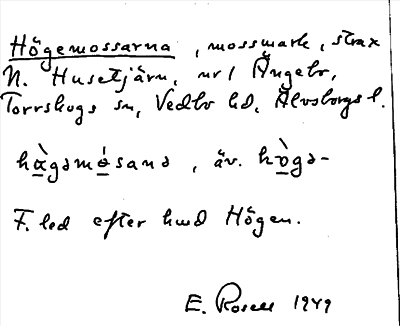 Högemossarna, mossmark, strax
N. Husetjärn, nr 1 Ängebr,
Torrskogs sn, Vedbo hd, Älvsborgs l.
hɑ̀gəmósana, äv. hògə-
F. led efter hmd Högen.
E. Rosell 1949